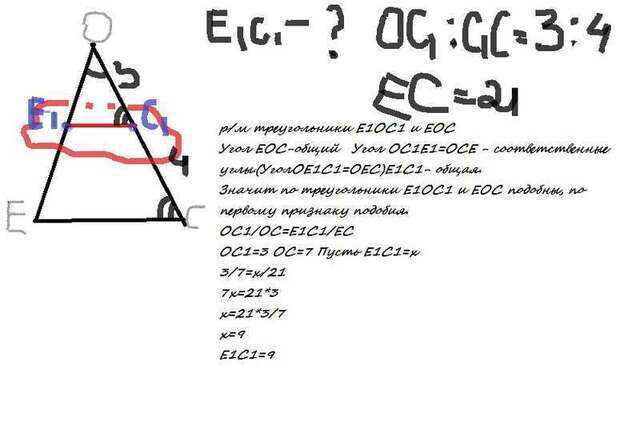 O
E₁C₁ - ? OC₁ : C₁C = 3 : 4
EC = 21
3
E₁ C₁
4
E C
р/м треугольники E1OC1 и EOC
Угол EOC-общий Угол OC1E1=OCE - соответственные
углы.(УголOE1C1=OEC)E1C1- общая.
Значит по треугольники E1OC1 и EOC подобны, по
первому признаку подобия.
OC1/OC=E1C1/EC
OC1=3 OC=7 Пусть E1C1=x
3/7=x/21
7x=21*3
x=21*3/7
x=9
E1C1=9